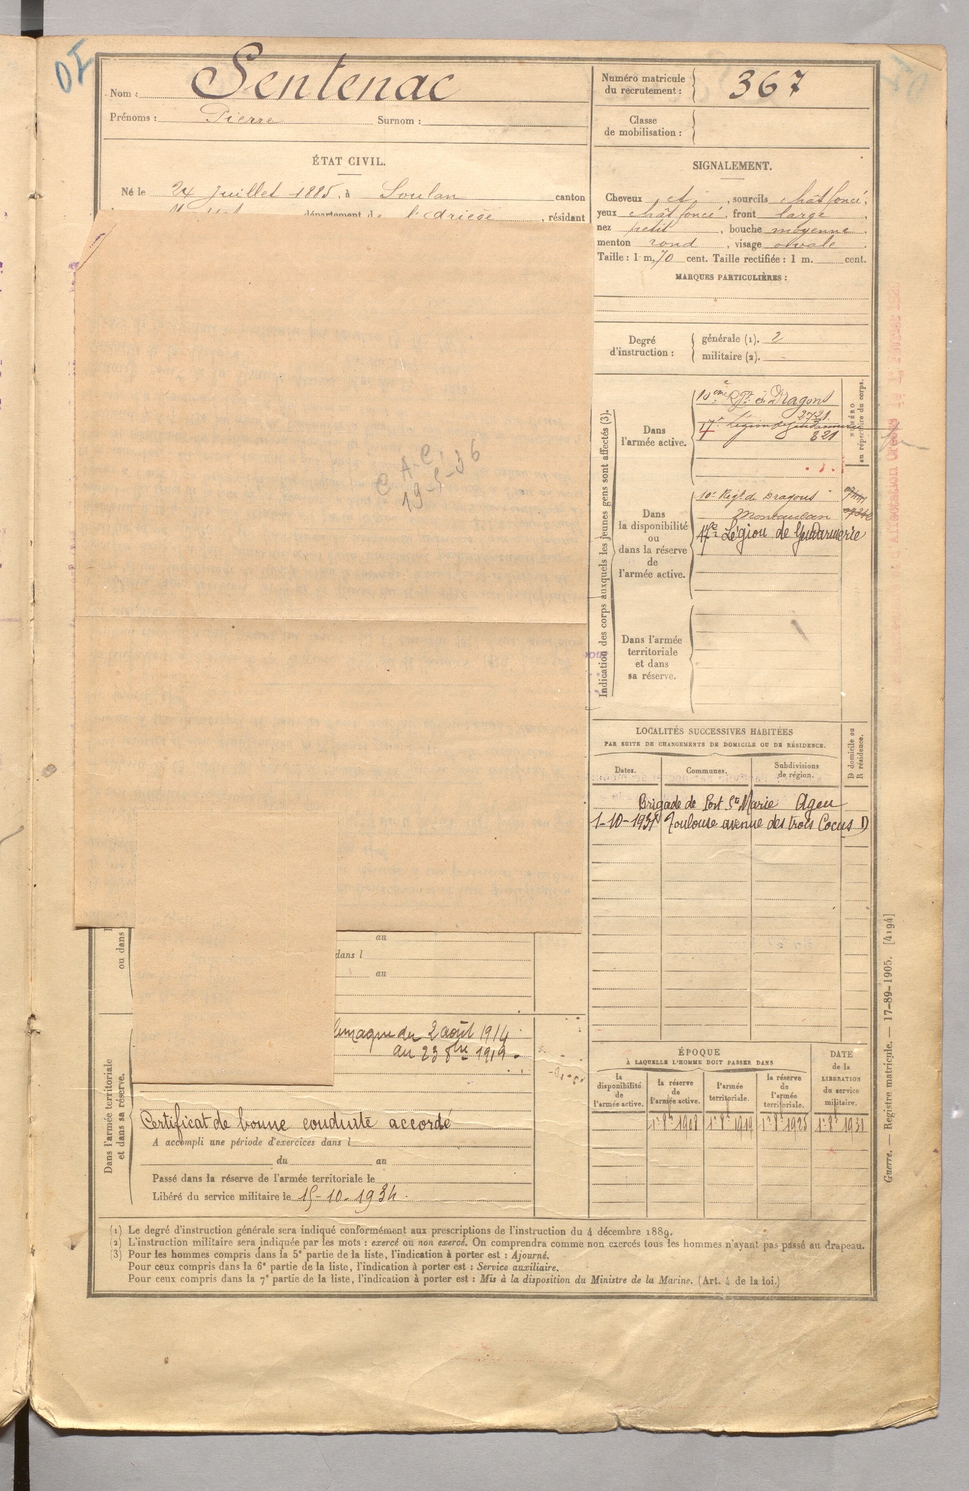 Nom : Sentenac
Prénoms : Pierre Surnom :
Numéro matricule du recrutement : 367
Classe de mobilisation :
ÉTAT CIVIL.
Né le 24 Juillet 1885, à Soulan canton
département de l'Ariège, résidant
C.A.C. 36
19-5-36
SIGNALEMENT.
Cheveux ct, sourcils chât foncé,
yeux chât foncé, front large,
nez petit, bouche moyenne
menton rond, visage ovale
Taille : 1 m. 70 cent. Taille rectifiée : 1 m. cent.
MARQUES PARTICULIÈRES :
Degré d'instruction : générale (1). 2
militaire (2). -
Indication des corps auxquels les jeunes gens sont affectés (3).
NUMÉRO au répertoire du corps.
Dans l'armée active.
10eme Rgt de Dragons
2721
17e Légion de Gendarmerie
821
Dans la disponibilité ou dans la réserve de l'armée active.
10e Régt de Dragons
Montauban
17e Légion de Gendarmerie
Dans l'armée territoriale et dans sa réserve.
LOCALITÉS SUCCESSIVES HABITÉES
PAR SUITE DE CHANGEMENTS DE DOMICILE OU DE RÉSIDENCE.
Dates. Communes. Subdivisions de région. D domicile ou R résidence.
Brigade de Port Ste Marie Agen
Toulouse avenue des trois Cocus D
ou dans
au
dans l
au
Dans l'armée territoriale et dans sa réserve.
lemagne du 2 août 1914
au 23 8bre 1919.
Certificat de bonne conduite accordé
A accompli une période d'exercices dans l
du au
Passé dans la réserve de l'armée territoriale le
Libéré du service militaire le 15-10-1934.
ÉPOQUE
À LAQUELLE L'HOMME DOIT PASSER DANS
la disponibilité de l'armée active. la réserve de l'armée active. l'armée territoriale. la réserve de l'armée territoriale.
DATE de la LIBÉRATION du service militaire.
1er 8bre 1908 1er 8bre 1919 1er 8bre 1925 1er 8bre 1931
(1) Le degré d'instruction générale sera indiqué conformément aux prescriptions de l'instruction du 4 décembre 1889.
(2) L'instruction militaire sera indiquée par les mots : exercé ou non exercé. On comprendra comme non exercés tous les hommes n'ayant pas passé au drapeau.
(3) Pour les hommes compris dans la 5e partie de la liste, l'indication à porter est : Ajourné.
Pour ceux compris dans la 6e partie de la liste, l'indication à porter est : Service auxiliaire.
Pour ceux compris dans la 7e partie de la liste, l'indication à porter est : Mis à la disposition du Ministre de la Marine. (Art. 4 de la loi.)
Guerre. — Registre matricule. — 17-89-1905. [4194]